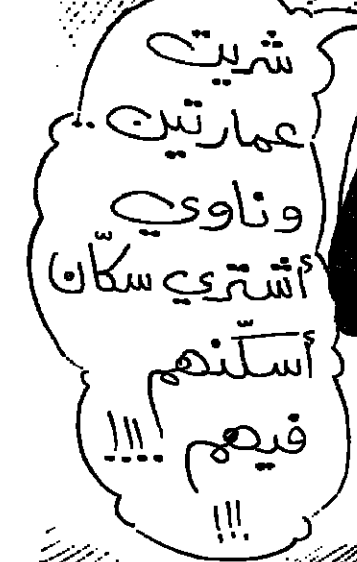 شريت
عمارتين..
وناوي
أشتري سكّان
أسكّنهم
فيهم !!!
!!!